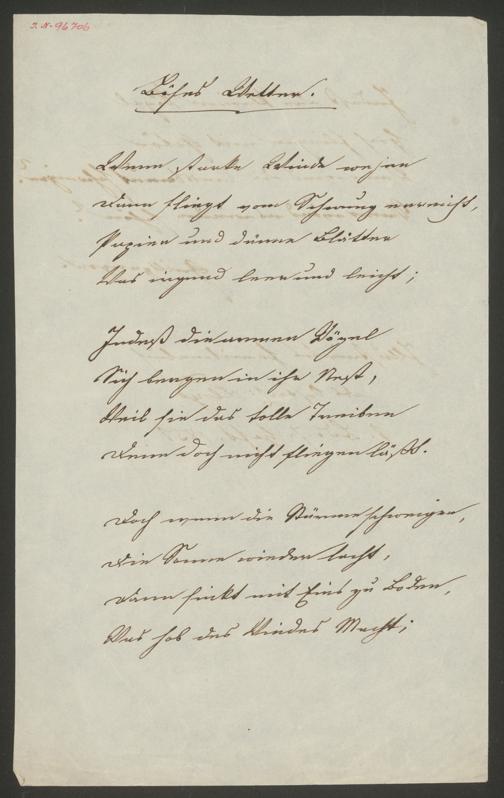 I. N. 96706
Böses Wetter.
Wenn starke Winde wehen
Dann fliegt vom Schwung erreicht,
Papier und dürre Blätter
Was irgend leer und leicht;
Indeß die armen Vögel
Sich bergen in ihr Nest,
Weil sie das tolle Treiben
Denn doch nicht fliegen läßt.
Doch wenn die Stürme schweigen,
Die Sonne wieder lacht,
Dann sinkt mit Eins zu Boden,
Was hob des Windes Macht;